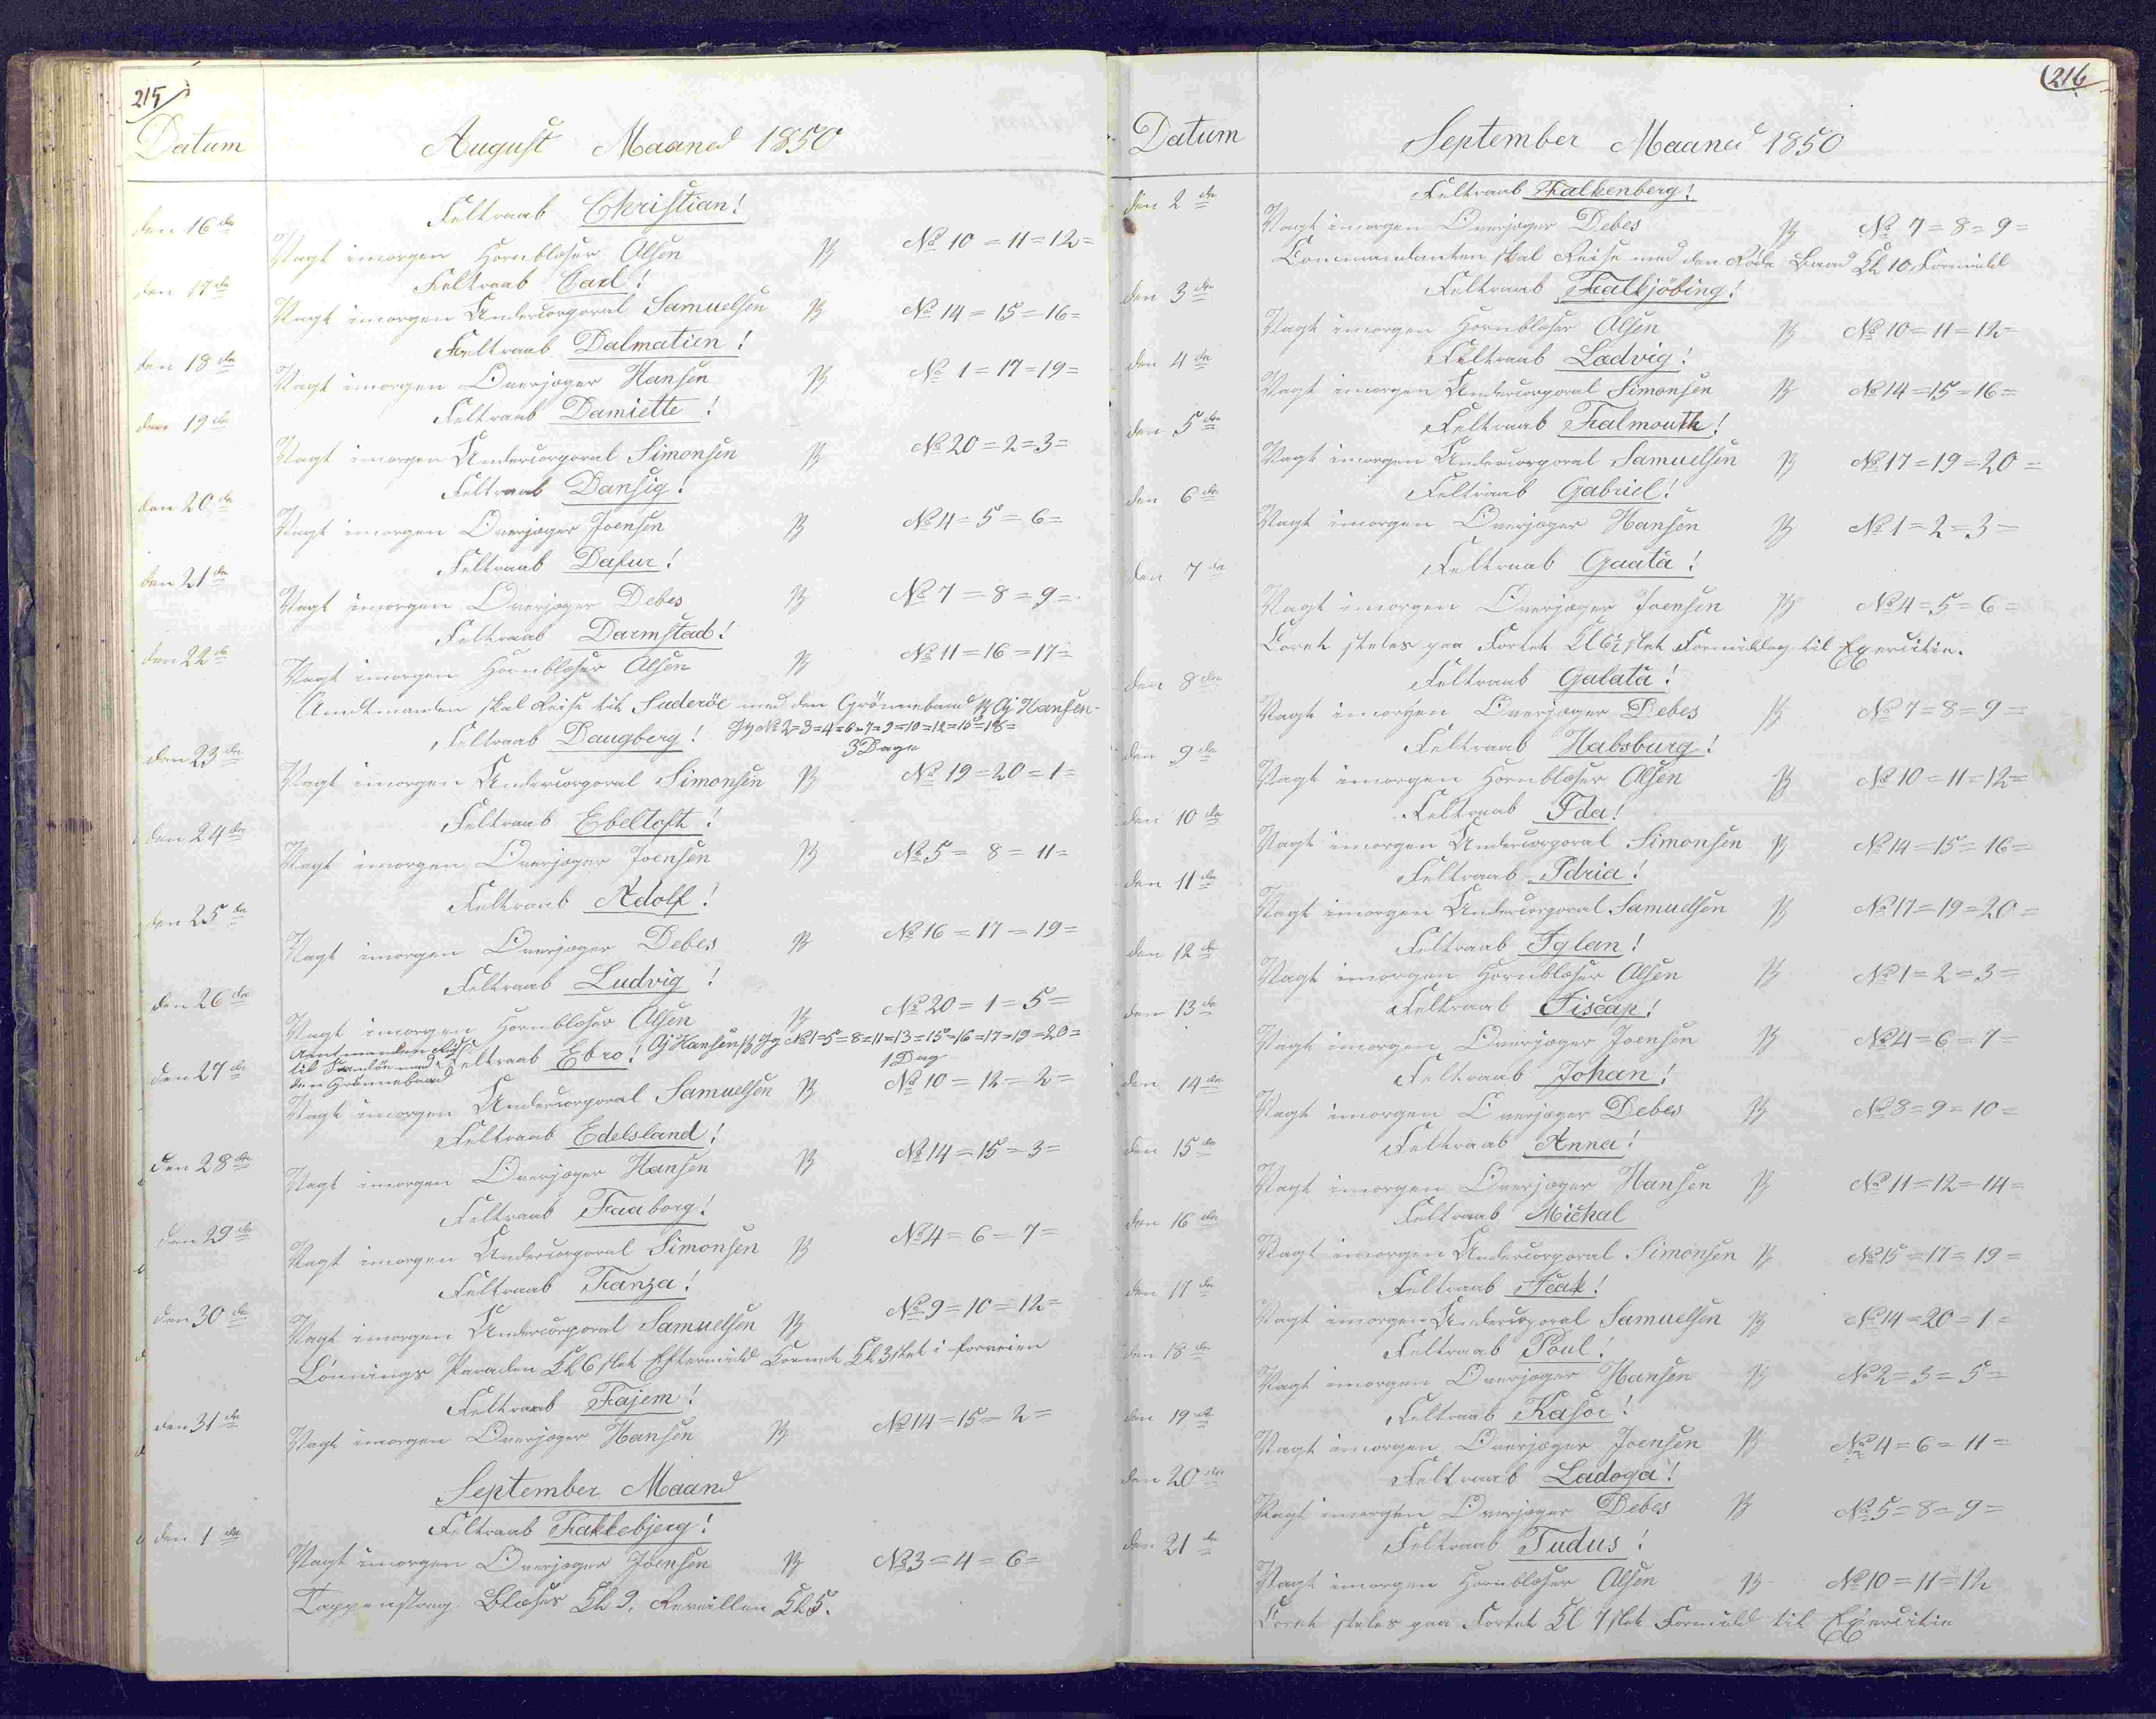 215
Datum
August Maaned 1850
den 16de Feltraab Christian!
Vagt imorgen Hornblæser Olsen № 10 = 11 = 12 =
den 17de Feltraab Carl!
Vagt imorgen Undercorporal Samuelsen № 14 = 15 = 16 =
den 18de Feltraab Dalmatien!
Vagt imorgen Overjæger Hansen № 1 = 17 = 19 =
den 19de Feltraab Damiette!
Vagt imorgen Undercorporal Simonsen № 20 = 2 = 3 =
den 20de Feltraab Dansig!
Vagt imorgen Overjæger Joensen № 4 = 5 = 6 =
den 21de Feltraab Dafur!
Vagt imorgen Overjæger Debes № 7 = 8 = 9 =
den 22de Feltraab Darmstad!
Vagt imorgen Hornblæser Olsen № 11 = 16 = 17 =
Amtmanden skal Reise til Suderöe med den Grönnebaad Oj Hansen
den 23de Feltraab Daugberg! Jg № 2 = 3 = 4 = 6 = 7 = 9 = 10 = 12 = 15 = 18 =
3 Dage
Vagt imorgen Undercorporal Simonsen № 19 = 20 = 1 =
den 24de Feltraab Ebeltoft!
Vagt imorgen Overjæger Joensen № 5 = 8 = 11 =
den 25de Feltraab Adolf!
Vagt imorgen Overjæger Debes № 16 = 17 = 19 =
den 26de Feltraab Ludvig!
Vagt imorgen Hornblæser Olsen № 20 = 1 = 5 =
Amtmanden
til med
den Grönnebaad
den 27de Feltraab Ebro! Oj Hansen Jg № 1 = 5 = 8 = 11 = 13 = 15 = 16 = 17 = 19 = 20 =
1 Dag
Vagt imorgen Undercorporal Samuelsen № 10 = 12 = 2 =
den 28de Feltraab Edelsland!
Vagt imorgen Overjæger Hansen № 14 = 15 = 3 =
den 29de Feltraab Faaborg!
Vagt imorgen Undercorporal Simonsen № 4 = 6 = 7 =
den 30de Feltraab Fanza!
Vagt imorgen Undercorporal Samuelsen № 9 = 10 = 12 =
Lönnings Paraden Kl 6 slet Eftermidd Kl 3 slet i forveien
den 31de Feltraab Fajem!
Vagt imorgen Overjæger Hansen № 14 = 15 = 2 =
September Maaned
den 1de Feltraab Fakkebjerg!
Vagt imorgen Overjæger Joensen № 3 = 4 = 6 =
Tappenstreg Blæses Kl 9. Reveillen Kl 5.
216
Datum
September Maaned 1850
den 2de Feltraab Falkenberg!
Vagt imorgen Overjæger Debes № 7 = 8 = 9 =
Commandanten skal Reise med den Röde Baad Kl 10 Formidd
den 3de Feltraab Falkjöbing!
Vagt imorgen Hornblæser Olsen № 10 = 11 = 12 =
den 4de Feltraab Lodvig!
Vagt imorgen Undercorporal Simonsen № 14 = 15 = 16 =
den 5de Feltraab Falmouth!
Vagt imorgen Undercorporal Samuelsen № 17 = 19 = 20 =
den 6de Feltraab Gabriel!
Vagt imorgen Overjæger Hansen № 1 = 2 = 3 =
den 7de Feltraab Gaata!
Vagt imorgen Overjæger Joensen № 4 = 5 = 6 =
Coret steles paa Fortet Kl 6½ slet Formiddag til Exercitie.
den 8de Feltraab Galata!
Vagt imorgen Overjæger Debes № 7 = 8 = 9 =
den 9de Feltraab Habsburg!
Vagt imorgen Hornblæser Olsen № 10 = 11 = 12 =
den 10de Feltraab Ida!
Vagt imorgen Undercorporal Simonsen № 14 = 15 = 16 =
den 11de Feltraab Idria!
Vagt imorgen Undercorporal Samuelsen № 17 = 19 = 20 =
den 12de Feltraab Iglan!
Vagt imorgen Hornblæser Olsen № 1 = 2 = 3 =
den 13de Feltraab Tiscan!
Vagt imorgen Overjæger Joensen № 4 = 6 = 7 =
den 14de Feltraab Johan!
Vagt imorgen Overjæger Debes № 8 = 9 = 10 =
den 15de Feltraab Anna!
Vagt imorgen Overjæger Hansen № 11 = 12 = 14 =
den 16de Feltraab Michal
Vagt imorgen Undercorporal Simonsen № 15 = 17 = 19 =
den 17de Feltraab
Vagt imorgen Undercorporal Samuelsen № 14 = 20 = 1 =
den 18de Feltraab Poul!
Vagt imorgen Overjæger Hansen № 2 = 3 = 5 =
den 19de Feltraab Kasoe!
Vagt imorgen Overjæger Joensen № 4 = 6 = 11 =
den 20de Feltraab Ladoga!
Vagt imorgen Overjæger Debes № 5 = 8 = 9 =
den 21de Feltraab Tudus!
Vagt imorgen Hornblæser Olsen № 10 = 11 = 12
Coret steles paa Fortet Kl 7 slet Formidd til Exercitie